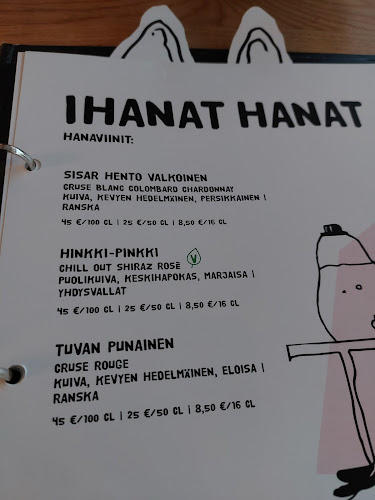 IHANAT HANAT
HANAVIINIT:
SISAR HENTO VALKOINEN
CRUSE BLANC COLOMBARD CHARDONNAY
KUIVA, KEVYEN HEDELMÄINEN, PERSIKKAINEN |
RANSKA
45 €/100 CL | 25 €/50 CL | 8,50 €/16 CL
HINKKI-PINKKI V
CHILL OUT SHIRAZ ROSÉ
PUOLIKUIVA, KESKIHAPOKAS, MARJAISA |
YHDYSVALLAT
45 €/100 CL | 25 €/50 CL | 8,50 €/16 CL
TUVAN PUNAINEN
CRUSE ROUGE
KUIVA, KEVYEN HEDELMÄINEN, ELOISA |
RANSKA
45 €/100 CL | 25 €/50 CL | 8,50 €/16 CL